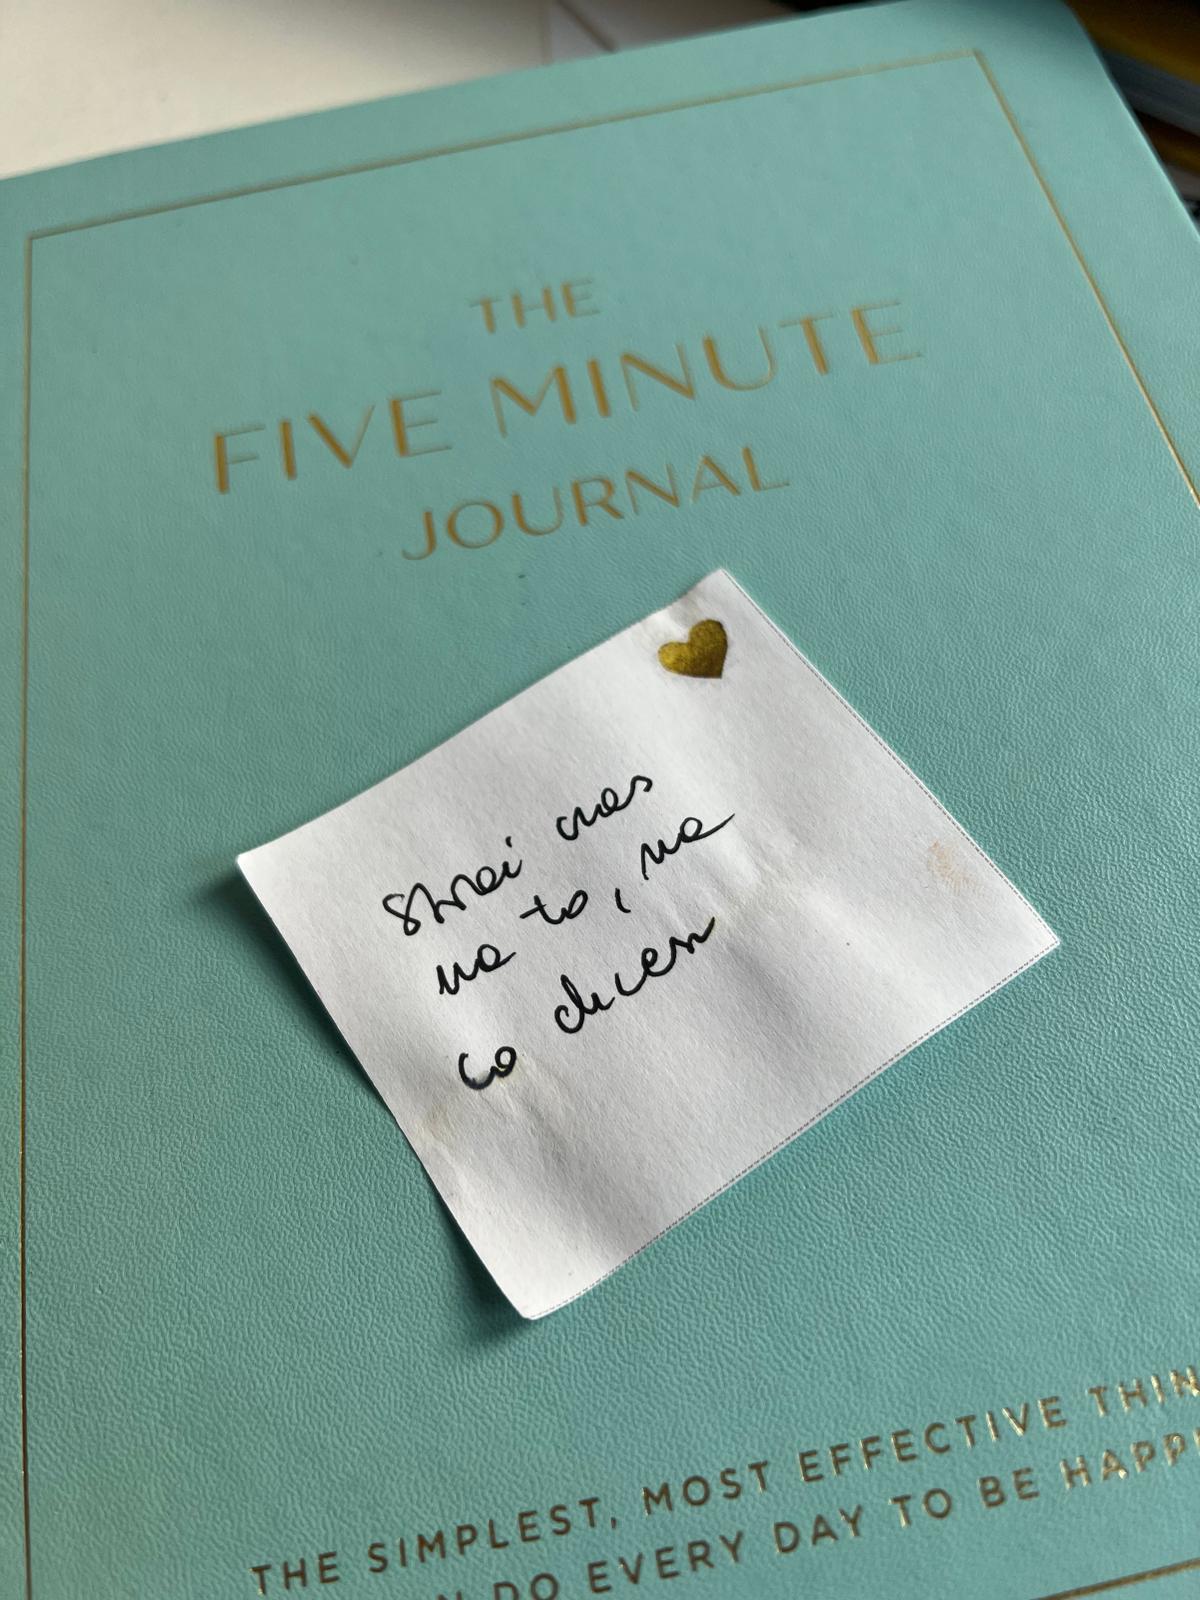 THE
FIVE MINUTE
JOURNAL
czas
na to, na
co chcesz
THE SIMPLEST, MOST EFFECTIVE THIN
N DO EVERY DAY TO BE HAPP